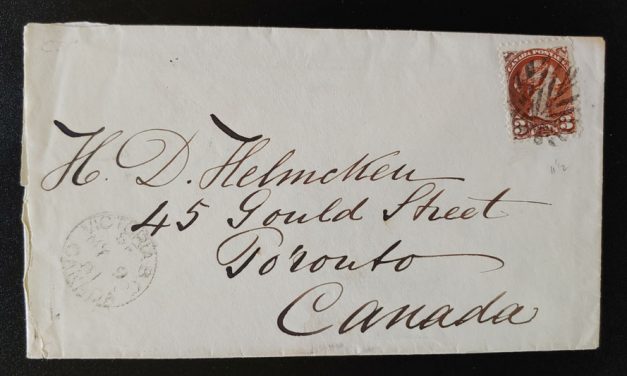 CANADA POSTAGE
3 3
H. D. Helmcken
45 Gould Street
Toronto
Canada
VICTORIA B.C.